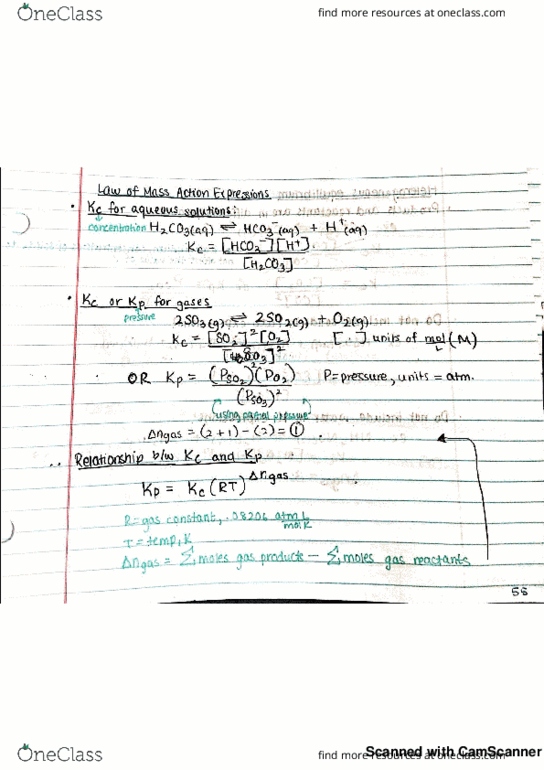 OneClass
find more resources at oneclass.com
Law of Mass Action Expressions
• Kc for aqueous solutions:
concentration H₂CO₃(aq) ⇌ HCO₃⁻(aq) + H⁺(aq)
Kc = [HCO₃⁻][H⁺]
[H₂CO₃]
• Kc or Kp for gases
pressure
2SO₃(g) ⇌ 2SO₂(g) + O₂(g)
Kc = [SO₂]²[O₂] [ ] units of mol/L (M)
[SO₃]²
OR Kp = (P_SO₂)²(P_O₂) P=pressure, units = atm.
(P_SO₃)²
using partial pressure
Δngas = (2+1) - (2) = 1
Relationship b/w Kc and Kp
Kp = Kc(RT)^Δngas
R=gas constant, .08206 atm L
mol.K
T = temp, K
Δngas = Σ moles gas products - Σ moles gas reactants
58
Scanned with CamScanner
OneClass
find more resources at oneclass.com